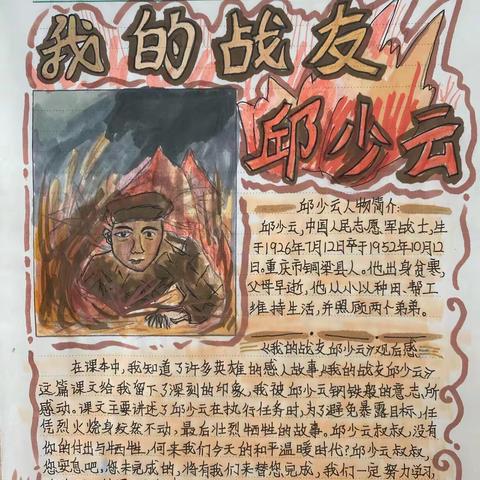 我的战友
邱少云
邱少云人物简介:
邱少云,中国人民志愿军战士,生
于1926年7月12日卒于1952年10月12
日。重庆市铜梁县人。他出身贫寒,
父母早逝,他从小以种田、帮工
维持生活,并照顾两个弟弟。
《我的战友邱少云》观后感
在课本中,我知道了许多英雄的感人故事《我的战友邱少云》
这篇课文给我留下了深刻的印象,我被邱少云钢铁般的意志,所
感动。课文主要讲述了邱少云在执行任务时,为了避免暴露目标,任
凭烈火烧身纹丝不动,最后壮烈牺牲的故事。邱少云叔叔,没有
你的付出与牺牲,何来我们今天的和平温暖时代?邱少云叔叔,
您安息吧,您未完成的,将有我们来替您完成,我们一定努力学习,